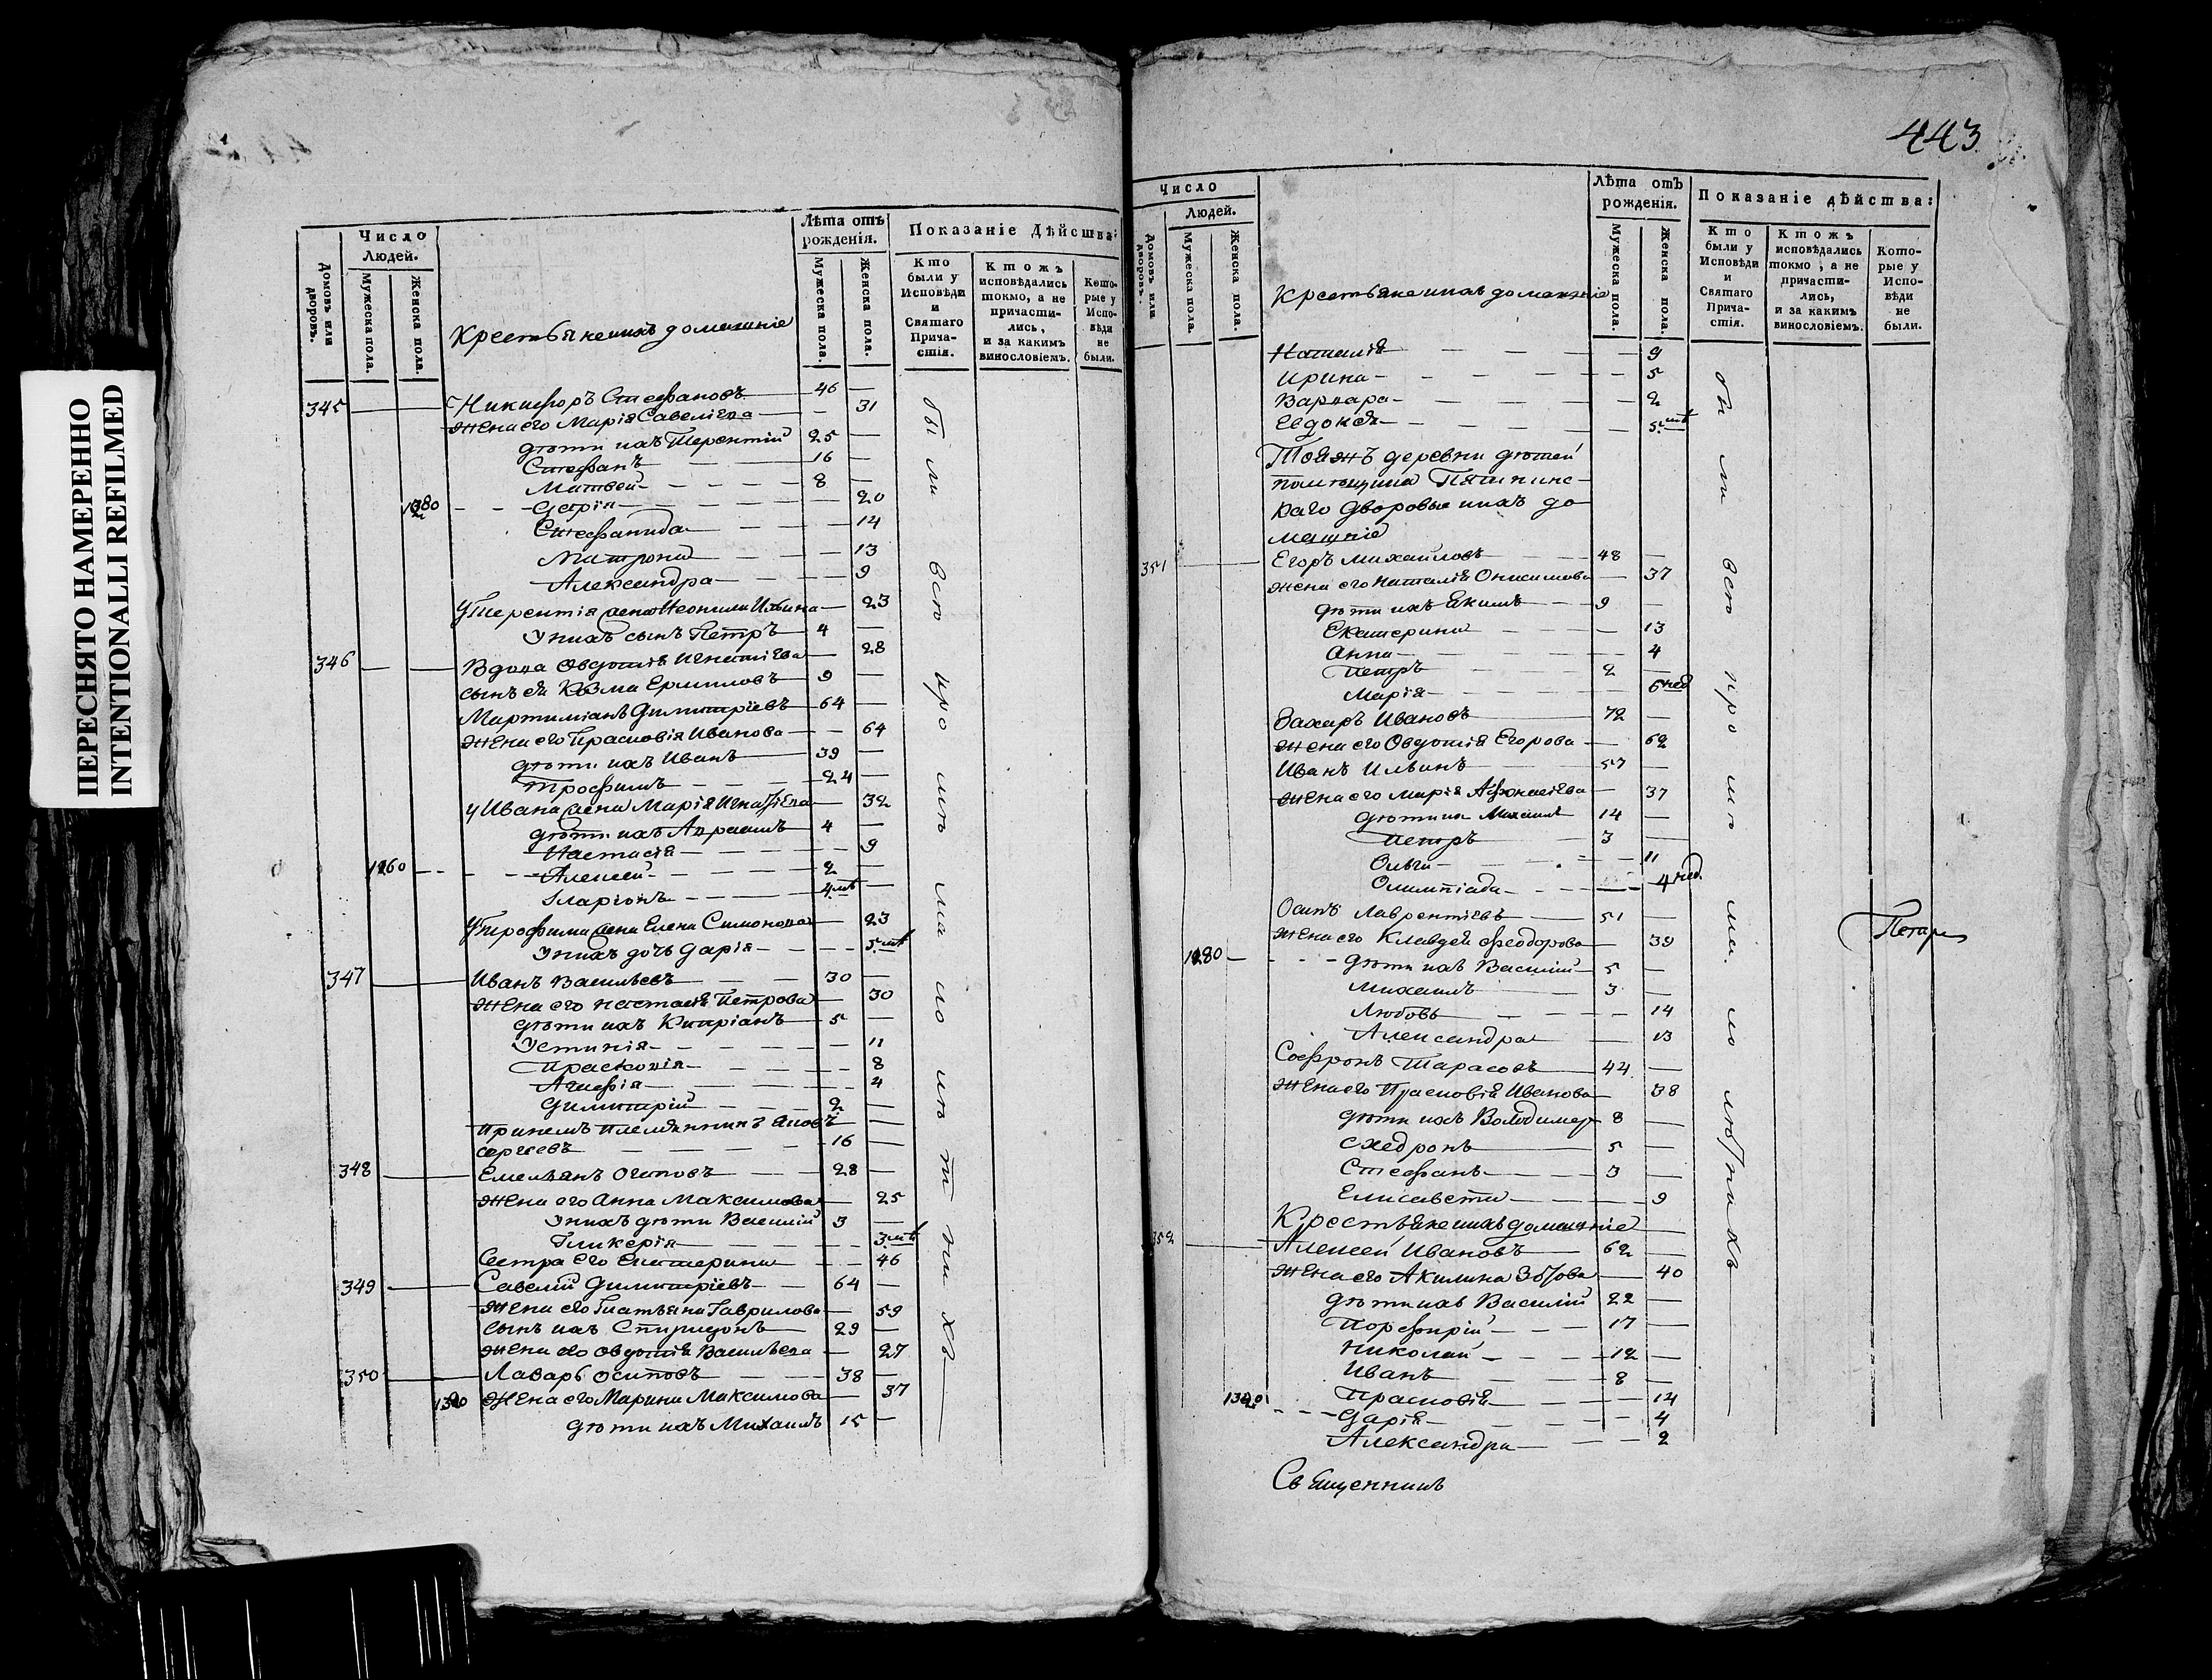 ПЕРЕСНЯТО НАМЕРЕННО
INTENTIONALLI REFILMED
Число Людей.
Лѣта отъ рожденія.
Показаніе Дѣйства:
Домовъ или дворовъ.
Мужеска пола.
Женска пола.
Крестьяне и ихъ домашніе
Мужеска пола.
Женска пола.
Кто были у Исповѣди и Святаго Прича-стія.
Ктожъ исповѣдались токмо, а не причасти-лись, и за какимъ винословіемъ.
Кото-рые у Испо-вѣди не были.
345 Никифоръ Стефановъ 46
жена его Марія Савеліева 31
дѣти ихъ Терентій 25
Стефанъ 16
Матвей 8
Дарія 20
Стефанида 14
Матрона 13
Александра 9
У Терентія жена Неонила Ильина 23
У нихъ сынъ Петръ 4
346 Вдова Овдотія Игнатіева 28
сынъ ея Козма Ермиловъ 9
Мартиміанъ Димитріевъ 64
жена его Прасковія Иванова 64
дѣти ихъ Иванъ 39
Трофимъ 24
у Ивана жена Марія Игнатіева 32
дѣти ихъ Авраамъ 4
Настасія 9
1260 Алексей 2
Іларіонъ 4 мѣ
У Трофима жена Елена Симонова 23
У нихъ дочь Дарія 5 мѣ
347 Иванъ Васильевъ 30
жена его Настасія Петрова 30
дѣти ихъ Кипріанъ 5
Устинія 11
Прасковія 8
Агафія 4
Димитрій 2
При немъ племянникъ Яковъ
Сергеевъ 16
348 Емельянъ Осиповъ 28
жена его Анна Максимова 25
У нихъ дѣти Василій 3
Гликерія 3 мѣ
Сестра его Екатерина 46
349 Савелій Димитріевъ 64
жена его Татьяна Гаврилова 59
сынъ ихъ Спиридонъ 29
жена его Овдотія Васильева 27
350 Лаваръ Осиповъ 38
жена его Марина Максимова 37
дѣти ихъ Михаилъ 15
443
Число
Людей.
Лѣта отъ рожденія.
Показаніе дѣйства:
Домовъ или дворовъ.
Мужеска пола.
Женска пола.
Крестьяне и ихъ домашніе
Мужеска пола.
Женска пола.
Кто были у Исповѣди и Святаго Прича-стія.
Ктожъ исповѣдались токмо, а не причасти-лись, и за какимъ винословіемъ.
Кото-рые у Испо-вѣди не были.
Наталія 9
Ирина 5
Варвара 2
Евдокія 5 мѣ
Тояжъ деревни дѣтей
помещика
каго дворовые и ихъ до
машніе
351 Егоръ Михайловъ 48
жена его Наталія Онисимова 37
дѣти ихъ Екимъ 9
Екатерина 13
Анна 4
Петръ 2
Марія 6 нед
Захаръ Ивановъ 72
жена его Овдотія Егорова 62
Иванъ Ильинъ 57
жена его Марія Афонасіева 37
дѣти их Михаилъ 14
Петръ 3
Ольга 11
Олимпіада 4 нед
Осипъ Лаврентіевъ 51
жена его Клавдея Феодорова 39
1280 дѣти ихъ Василій 5
Михаилъ 3
Любовь 14
Александра 13
Софронъ Тарасовъ 44
жена его Прасковія Иванова 38
дѣти ихъ Володимер 8
5
Стефанъ 3
Елисавета 9
Крестьяне и ихъ домашніе
352 Алексей Ивановъ 62
жена его Акилина Зотова 40
дѣти ихъ Василій 22
Порфирій 17
Николай 12
Иванъ 8
Прасковія 14
Дарія 4
Александра 2
Священникъ